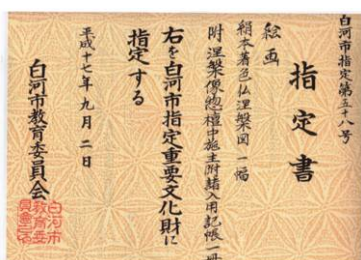 白河市指定第五十八号
指定書
絵画
絹本著色仏涅槃図 一幅
附 涅槃像惣檀中施主附諸入用記帳 一冊
右を白河市指定重要文化財に
指定する
平成十七年九月二日
白河市教育委員会
白河市
教育委
員会之印